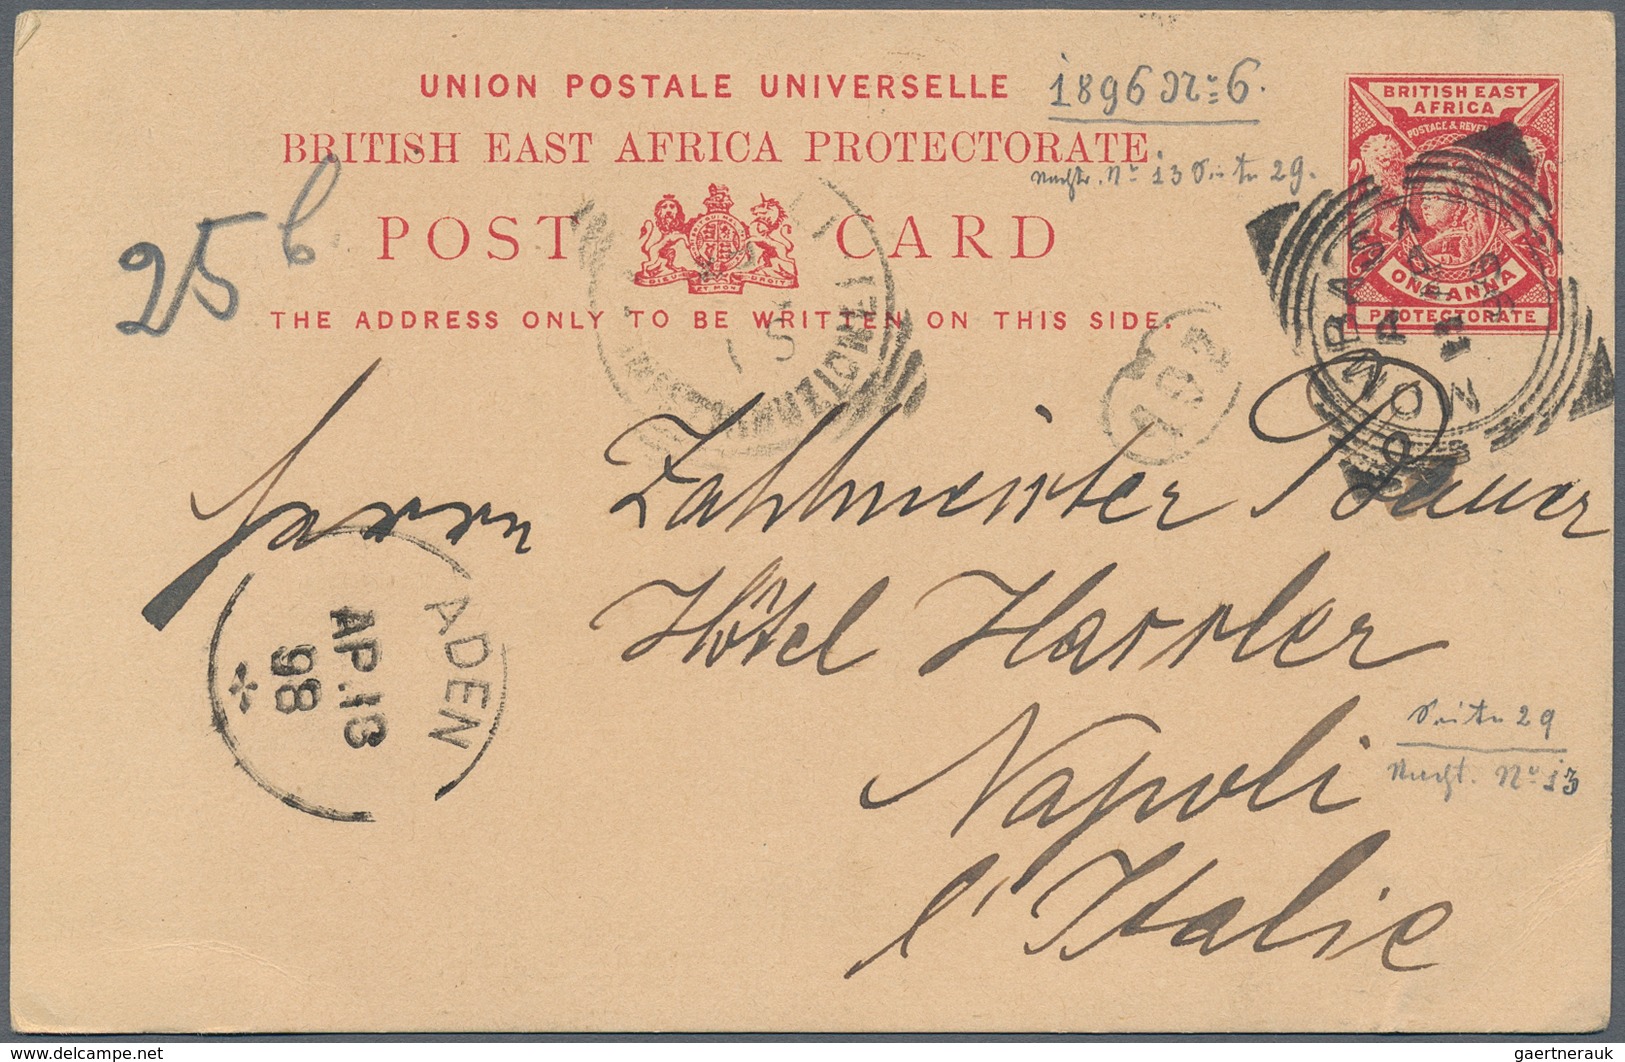 UNION POSTALE UNIVERSELLE
1896 Nr. 6.
BRITISH EAST AFRICA PROTECTORATE
Nachtr. Nr. 13 Seite 29.
POST CARD
DIEU ET MON DROIT
THE ADDRESS ONLY TO BE WRITTEN ON THIS SIDE.
BRITISH EAST
AFRICA
POSTAGE & REVE
ONE ANNA
PROTECTORATE
MOMBASA
25 b
192
Herrn Zahlmeister Bauer
Hôtel Hassler
Napoli
l'Italie
ADEN
AP.13
98
Seite 29
Nacht. Nr. 13
delcampe.net
gaertnerauk